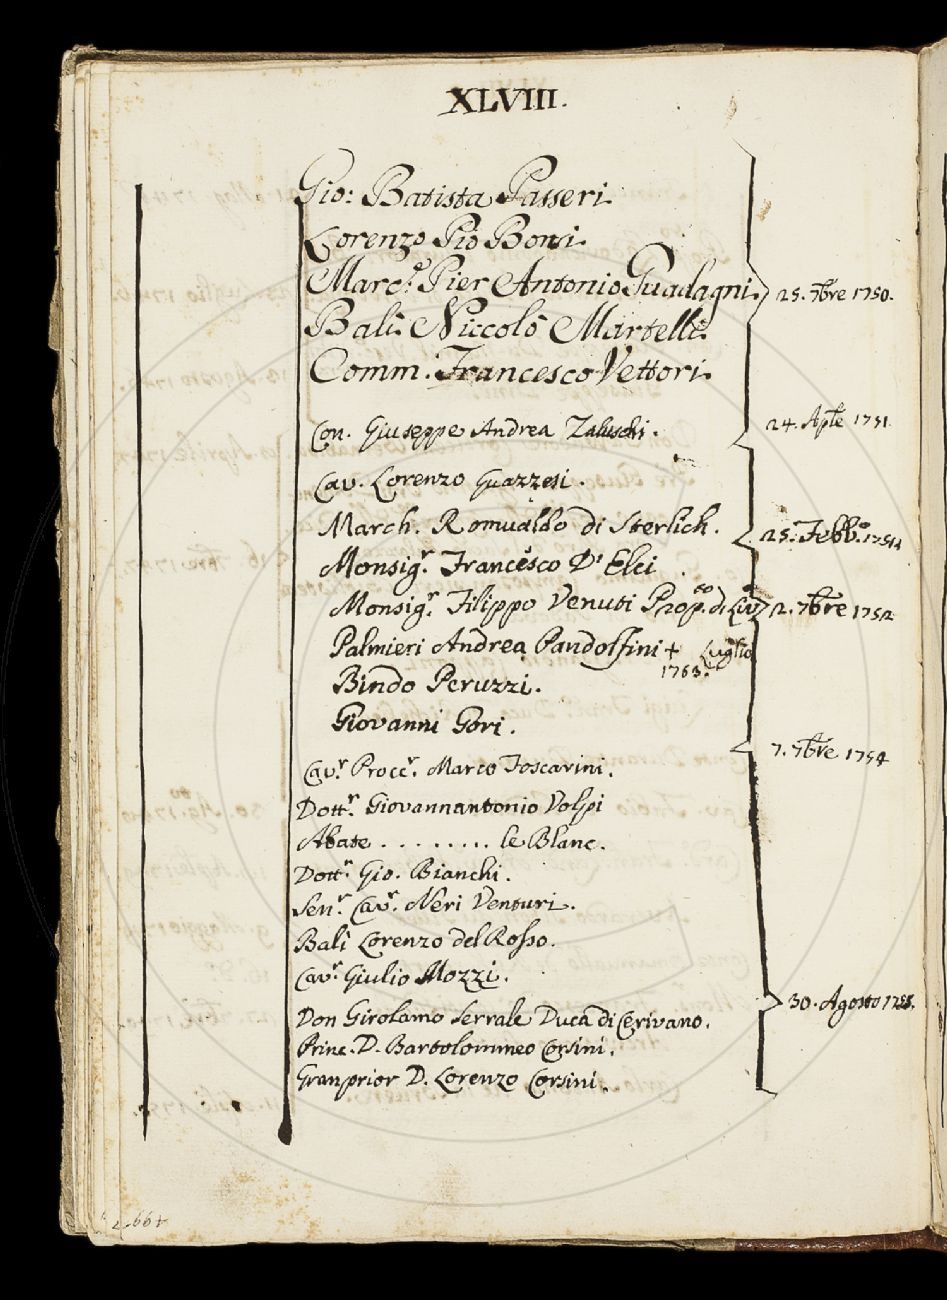 XLVIII.
Gio: Batista Passeri.
Lorenzo Pio Bonsi.
Marc.e Pier Antonio Guadagni. 25. 7bre 1750.
Balì Niccolò Martelli.
Comm. Francesco Vettori.
Con. Giuseppe Andrea Zaluschi. 24. Aple 1751
Cav. Lorenzo Guazzesi.
March. Romualdo di Sterlich. 25. Febb.o
Monsig.r Francesco D'Elci
Monsig.r Filippo Venuti Prop.to di Liv. 2. 7bre 1752
Palmieri Andrea Pandolfini + Luglio
1763.
Bindo Peruzzi.
Giovanni Gori.
7. 7bre 1754
Cav.r Procc.r Marco Foscarini.
Dott.r Giovannantonio Volpi
Abate . . . . . . . . le Blanc.
Dott.r Gio. Bianchi.
Sen.r Cav.r Neri Venturi.
Balì Lorenzo del Rosso.
Cav.r Giulio Mozzi.
Don Girolamo Serrale Duca di Cerivano. 30. Agosto 1755.
Princ. D. Bartolommeo Corsini.
Granprior D. Lorenzo Corsini.